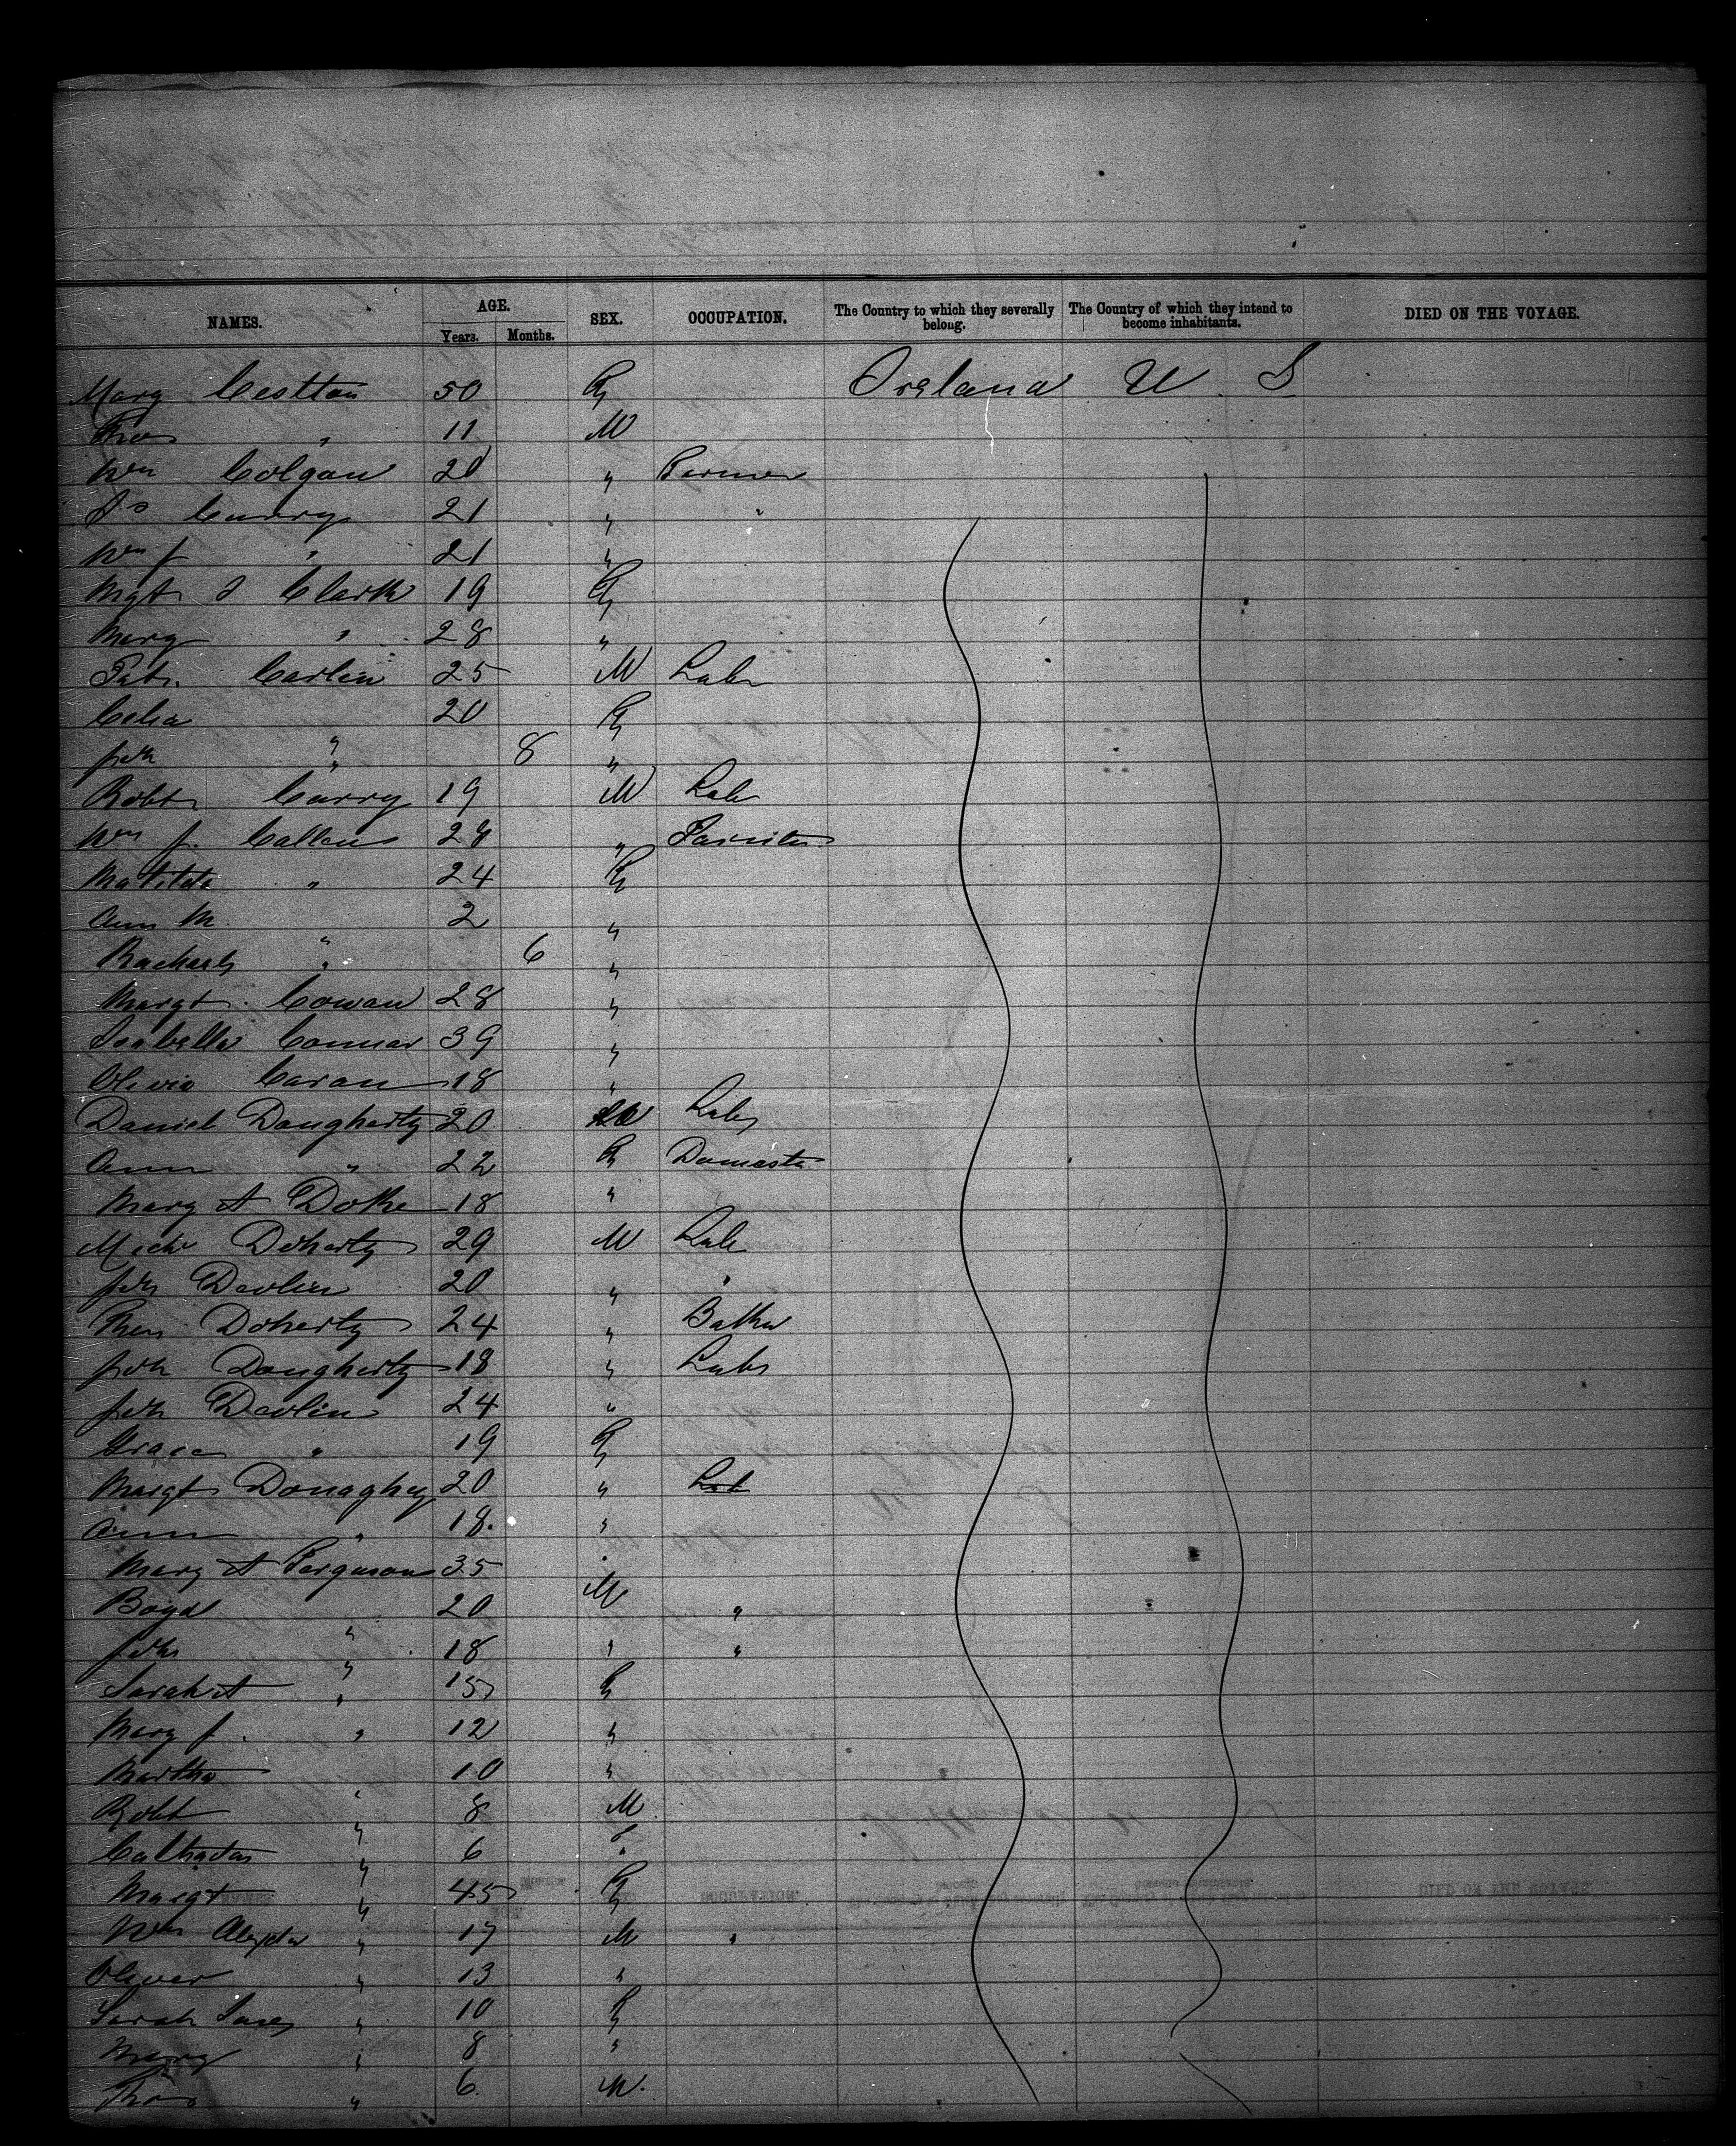 NAMES. AGE. Years. Months. SEX. OCCUPATION. The Country to which they severally belong. The Country of which they intend to become inhabitants. DIED ON THE VOYAGE.
Mary 50 F Ireland U. S
Thos " 11 M
Wm Colgan 20 " Farmer
Js Curry 21 " "
Wm J " 21 "
Mgt J Clark 19 F
Mary " 28 "
Patk. Carlin 25 M Labr
Celia " 20 F
Jno " 8 "
Robt Curry 19 M Lab
Wm J. Callen 28 " Painter
Matilda " 24 F
Ann M. " 2 "
Rachael " 6 "
Margt. Cowan 28 "
Isabella Connor 39 "
Olivia Caran 18 "
Daniel Dougherty 20 M Labr
Ann " 22 F Domestc
Mary A 18 "
Michl Doherty 29 M Lab
Jno Devlin 20 " "
Doherty 24 " Baker
Jno Dougherty 18 " Labr
Jno Devlin 24 " "
Grace " 19 F
Margt Donaghey 20 " Lab
Ann " 18. "
Mary A Ferguson 35 "
Boyd " 20 M "
Jno " 18 " "
Sarah A " 15 F
Mary J. " 12 "
Martha " 10 "
Robt " 8 M
" 6 "
Margt " 45 F
Wm Alexdr " 17 M "
Oliver " 13 "
Sarah Jane " 10 F
Mary " 8 "
Thos " 6 M.